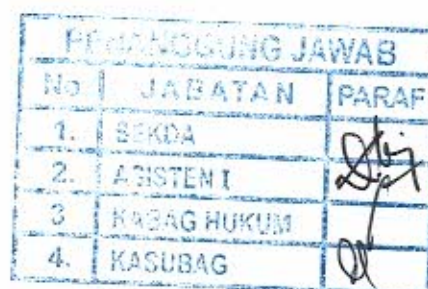 PENANGGUNG JAWAB
No JABATAN PARAF
1. SEKDA
2. ASISTEN I
3 KABAG HUKUM
4. KASUBAG